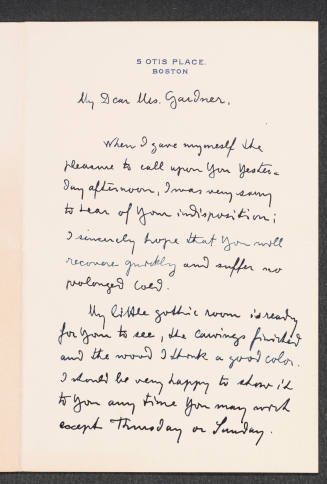 5 OTIS PLACE.
BOSTON
My Dear Mrs. Gardner,
When I gave mymself the
pleasure to call upon You Yester-
day afternoon, I was very sorry
to hear of Your indisposition;
I sincerely hope that You will
recovere quickly and suffer no
prolonged cold.
My little gothic room is ready
for You to see, the carvings finished
and the wood I think a good color.
I should be very happy to show it
to You any time You may wish
except Thursday or Sunday.